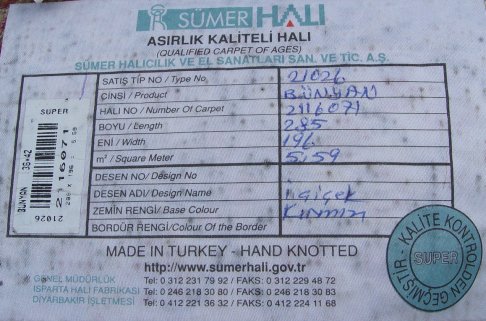 SÜMER HALI
ASIRLIK KALİTELİ HALI
(QUALIFIED CARPET OF AGES)
SÜMER HALICILIK VE EL SANATLARI SAN. VE TİC. A.Ş.
SATIŞ TİP NO / Type No 21026
ÇİNSİ / Product BÜNYAN
HALI NO / Number Of Carpet 2116071
BOYU / Length 285
ENİ / Width 196
m² / Square Meter 5.59
DESEN NO / Design No
DESEN ADI / Design Name
ZEMİN RENGİ / Base Colour Kırmızı
BORDÜR RENGİ / Colour Of the Border
SÜPER
BÜNYAN 36*42
2116071
285 X 196 - 5.59
21026
MADE IN TURKEY - HAND KNOTTED
http://www.sümerhali.gov.tr
GENEL MÜDÜRLÜK Tel:0 312 231 79 92 / FAKS: 0 312 229 48 72
ISPARTA HALI FABRİKASI Tel:0 246 218 30 80 / FAKS: 0 246 218 30 83
DİYARBAKIR İŞLETMESİ Tel:0 412 221 36 32 / FAKS: 0 412 224 11 68
KALİTE KONTROLDEN GEÇMİŞTİR
SÜPER